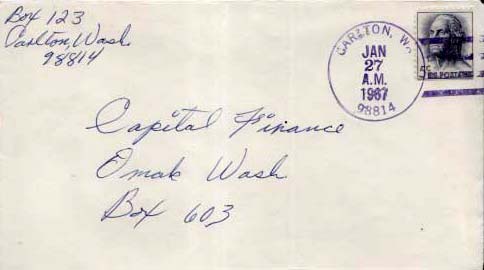 Box 123
Carlton, Wash
98814
CARLTON, WA
JAN
27
A.M.
1967
98814
U.S. POSTAGE
Capital Finance
Omak Wash
Box 603